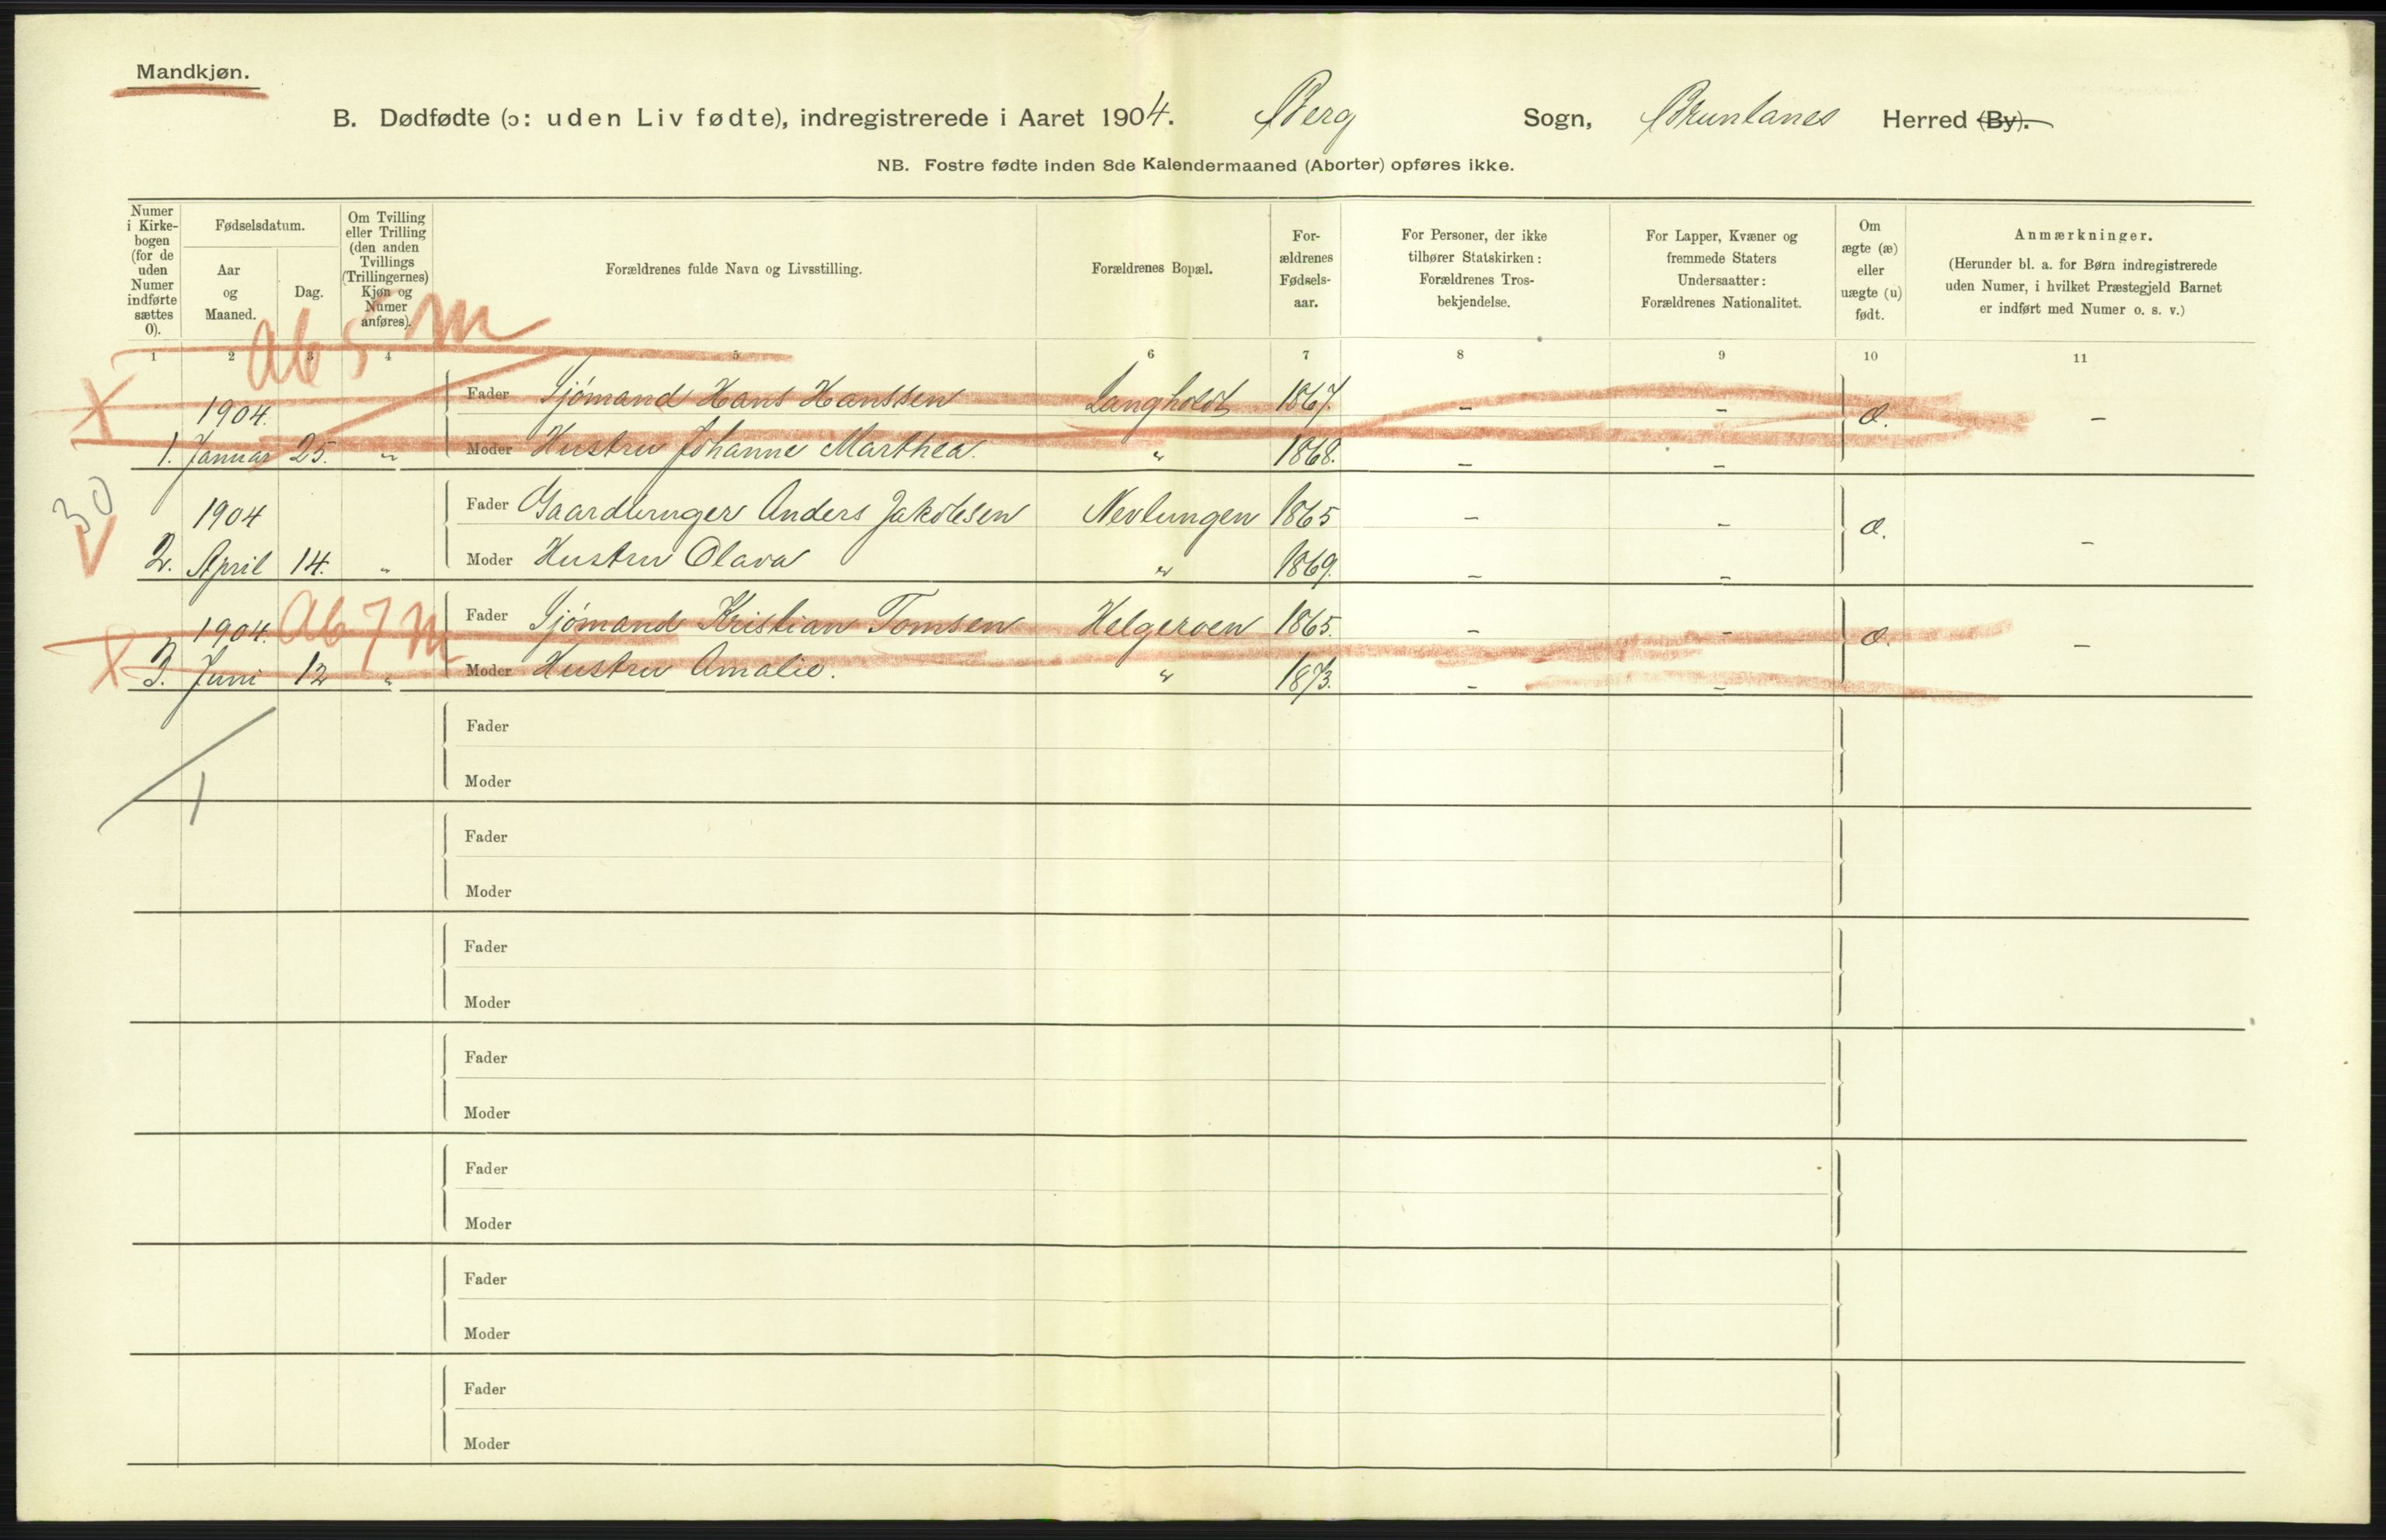 Mandkjøn.
B. Dødfødte (ɔ: uden Liv fødte), indregistrerede i Aaret 1904. Berg Sogn, Brunlanes Herred (By).
NB. Fostre fødte inden 8de Kalendermaaned (Aborter) opføres ikke.
Numer i Kirke-bogen (for de uden Numer indførte sættes 0).
Fødselsdatum.
Aar og Maaned.
Dag.
Om Tvilling eller Trilling (den anden Tvillings (Trillingernes) Kjøn og Numer anføres).
Forældrenes fulde Navn og Livsstilling.
Forældrenes Bopæl.
For-ældrenes Fødsels-aar.
For Personer, der ikke tilhører Statskirken: Forældrenes Tros-bekjendelse.
For Lapper, Kvæner og fremmede Staters Undersaatter: Forældrenes Nationalitet.
Om ægte (æ) eller uægte (u) født.
Anmærkninger.
(Herunder bl. a. for Børn indregistrerede uden Numer, i hvilket Præstegjeld Barnet er indført med Numer o. s. v.)
1 2 3 4 5 6 7 8 9 10 11
Ab 5 m
1904. Fader Sjømand Hans Hanssen Langholdt 1867. – – æ. –
1. Januar 25. " Moder Hustru Johanne Marthea. " 1868. – –
30
1904 Fader Gaardbruger Anders Jakobsen Nevlungen 1865 – – æ. –
2. April 14. " Moder Hustru Olava " 1869. – –
Ab 7 m
1904. Fader Sjømand Kristian Tomsen Helgeroen 1865. – – æ. –
3. Juni 12 " Moder Hustru Amalie. " 1873. – –
Fader
Moder
1
Fader
Moder
Fader
Moder
Fader
Moder
Fader
Moder
Fader
Moder
Fader
Moder